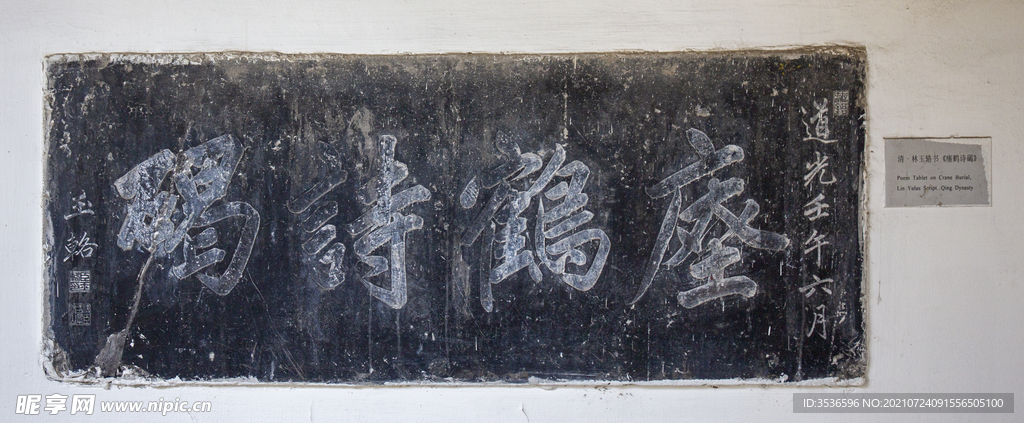 道光壬午六月
瘞鶴詩碣
玉輅
清·林玉辂书《瘗鹤诗碣》
Poem Tablet on Crane Burial,
Lin Yulus Script, Qing Dynasty
昵享网 www.nipic.cn
ID:3536596 NO:20210724091556505100